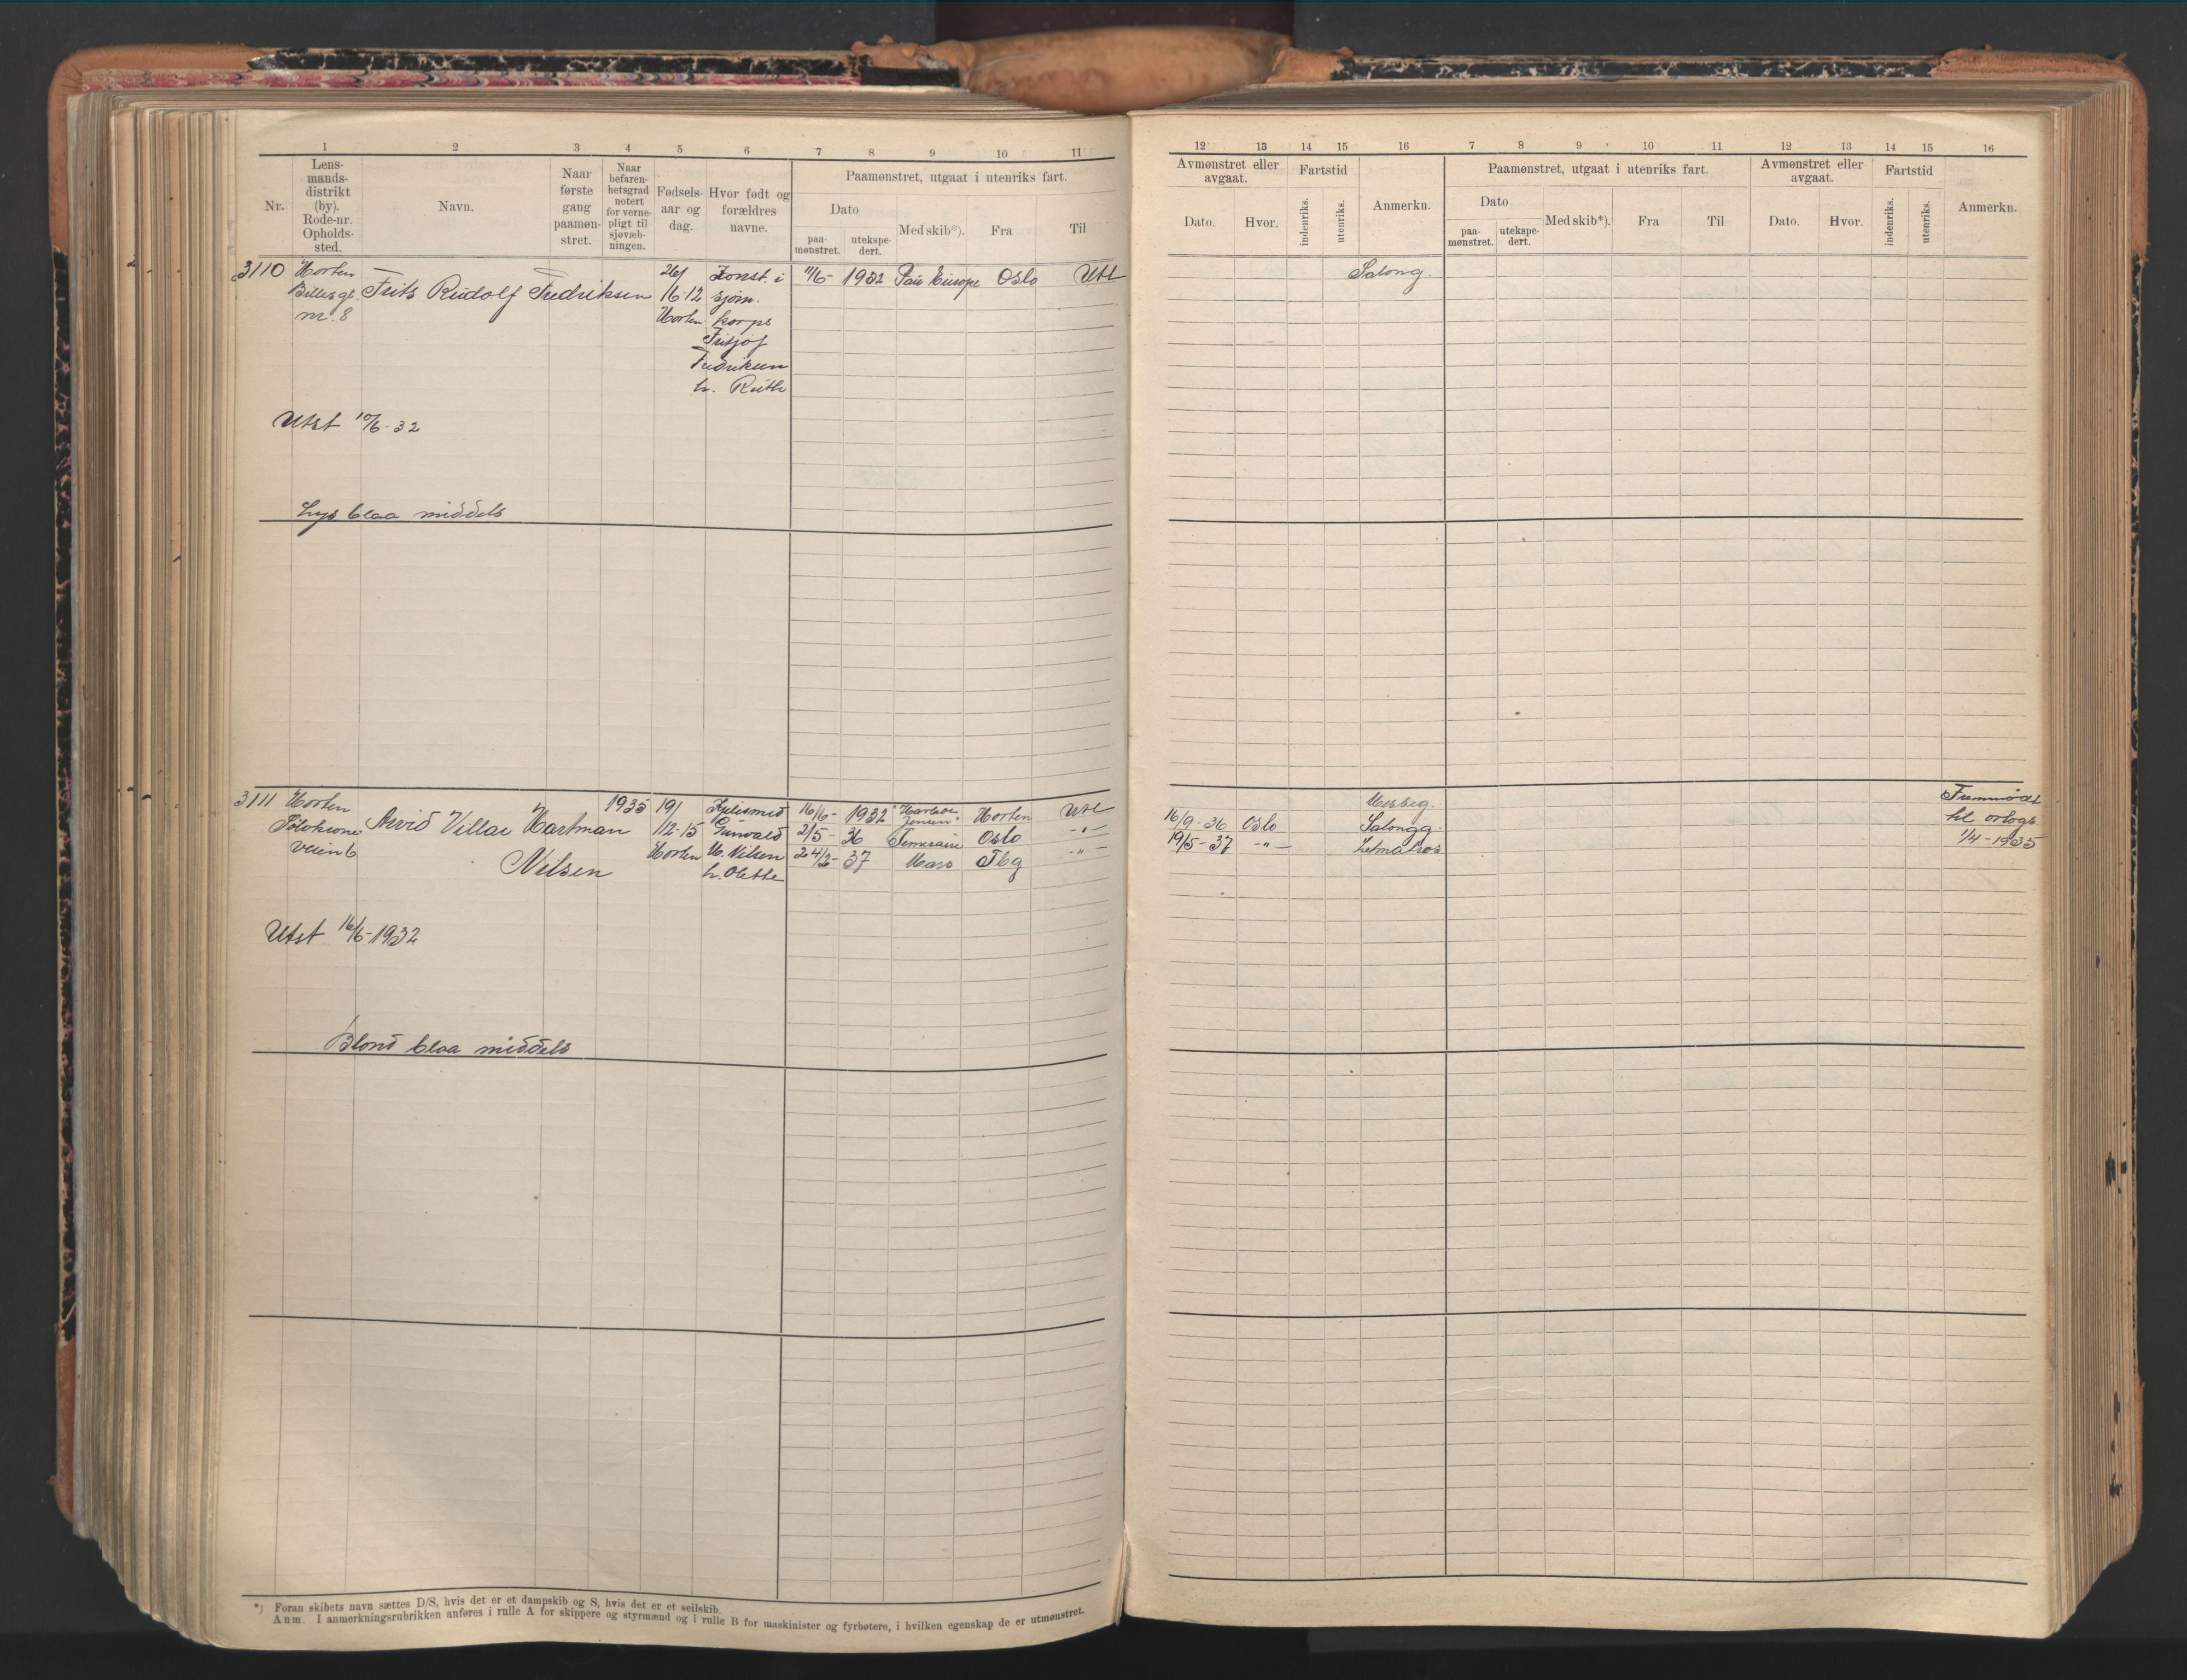 1 2 3 4 5 6 7 8 9 10 11
Nr.
Lens-
mands-
distrikt
(by).
Rode-nr.
Opholds-
sted.
Navn.
Naar
første
gang
paamøn-
stret.
Naar
befaren-
hetsgrad
notert
for verne-
pligt til
sjøvæb-
ningen.
Fødsels-
aar og
dag.
Hvor født og
forældres
navne.
Paamønstret, utgaat i utenriks fart.
Dato
paa-
mønstret.
utekspe-
dert.
Med skib*).
Fra
Til
3110 Horten Frits Rudolf Fredriksen 26/ Konst. i 11/6- 1932 Paris Europe Oslo Utl
Billesgt. 16-12 sjøm.
nr. 8 Horten korps
Fritjof
Fredriksen
h. Ruth
Utst 10/6-32
Lys blaa middels
3111 Horten Arvid Villar Hartman 1935 19/ 16/6- 1932 "Harboe Horten Utl
Jensen"
1/12-15 Gunvald 2/5- 36 Oslo -"-
veien 6 Nilsen Horten M. Nilsen 24/2- 37 Tbg -"-
h. Olette
Utst 16/6-1932
Blond blaa middels
*) Foran skibets navn sættes D/S, hvis det er et dampskib og S, hvis det er et seilskib.
Anm. I anmerkningsrubrikken anføres i rulle A for skippere og styrmænd og i rulle B for maskinister og fyrbøtere, i hvilken egenskap de er utmønstret.
12 13 14 15 16 7 8 9 10 11 12 13 14 15 16
Avmønstret eller
avgaat.
Dato.
Hvor.
Fartstid
indenriks.
utenriks.
Anmerkn.
Paamønstret, utgaat i utenriks fart.
Dato
paa-
mønstret.
utekspe-
dert.
Med skib*).
Fra
Til
Avmønstret eller
avgaat.
Dato.
Hvor.
Fartstid
indenriks.
utenriks.
Anmerkn.
Salong.
Messeg. Fremmødt
16/9-36 Oslo Salongg. til orlogs
19/5-37 -"- Letmatros 1/4-1935